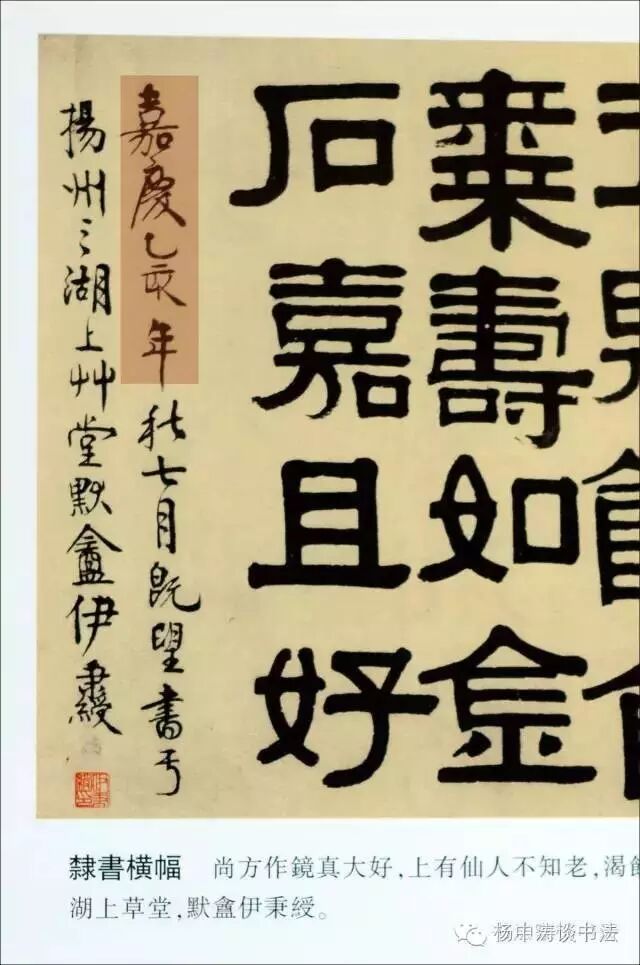 棗壽如金
石嘉且好
嘉慶乙亥年秋七月既望書于
揚州之湖上艸堂默盦伊秉綬
隸書橫幅 尚方作鏡真大好,上有仙人不知老,渴
湖上草堂,默盦伊秉綬。
杨中涛谈书法